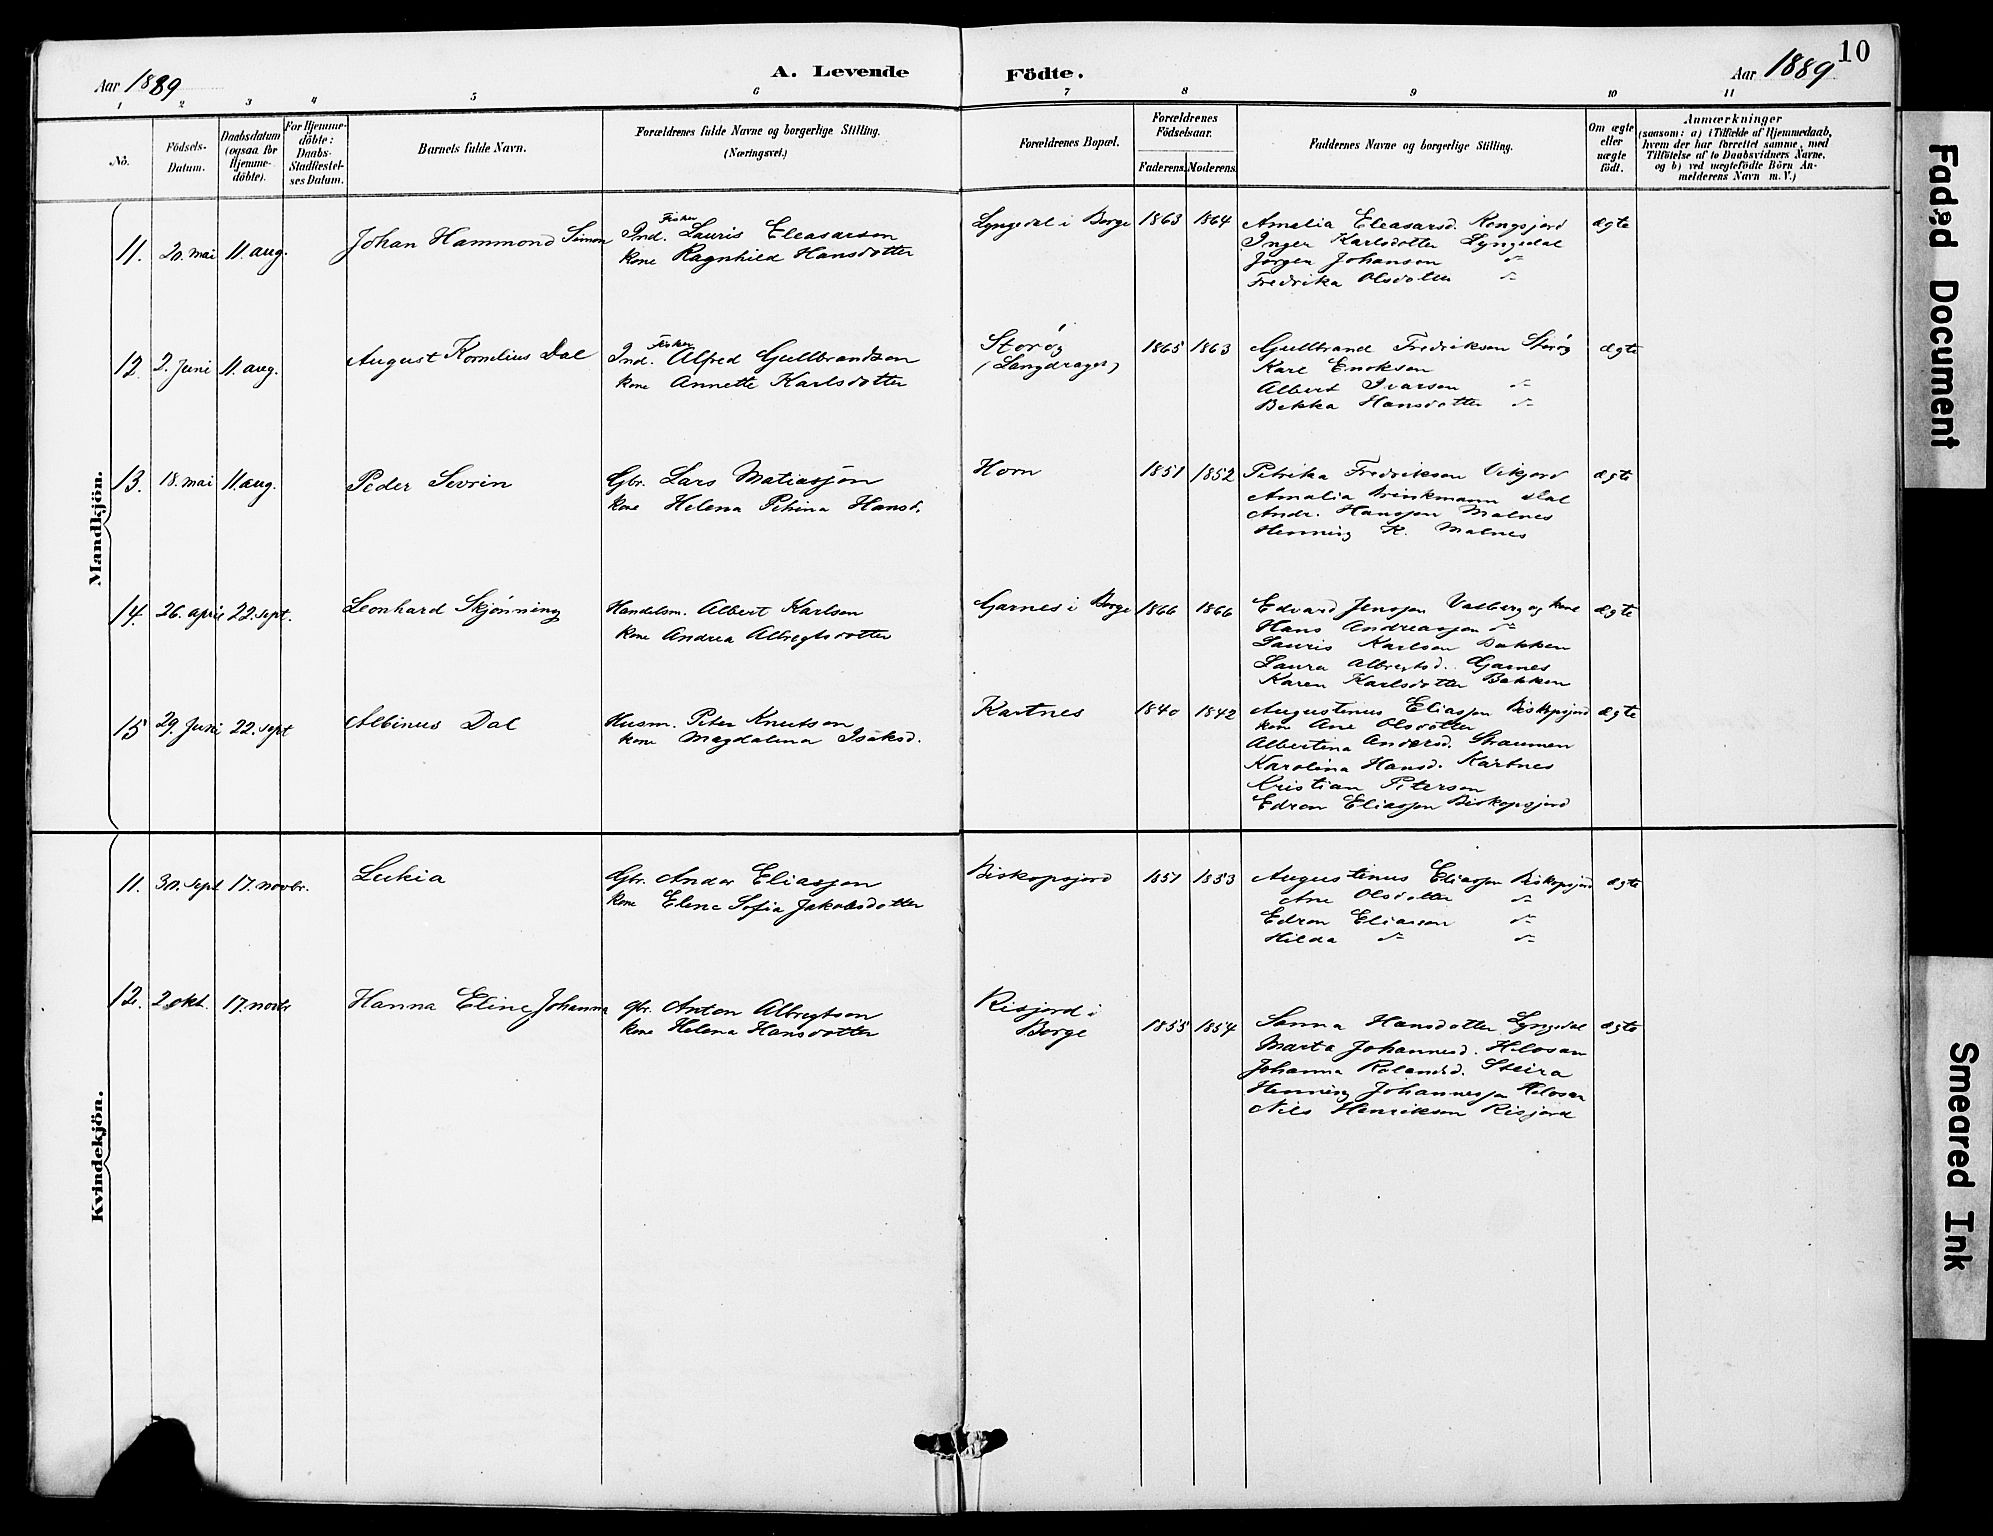 Aar 1889
A. Levende
Födte.
Aar 1889
10
1 2 3 4 5 6 7 8 9 10 11
No.
Födsels-
Datum.
Daabsdatum
(ogsaa for
Hjemme-
döbte).
For Hjemme-
döbte:
Daabs-
Stadfæstel-
ses Datum.
Barnets fulde Navn.
Forældrenes fulde Navne og borgerlige Stilling.
(Næringsvei.)
Forældrenes Bopæl.
Forældrenes
Födselsaar.
Faderens. Moderens.
Faddernes Navne og borgerlige Stilling.
Om ægte
eller
uægte
födt.
Anmærkninger
(saasom: a) i Tilfælde af Hjemmedaab,
hvem der har forrettet samme, med
Tilföielse af to Daabsvidners Navne,
og b) ved uægtefödte Börn An-
melderens Navn m. V.)
Mandkjön.
11. 20. mai 11. aug. Johan Hammond Simon
Fisker
Ind. Lauris Eleasarson
kone Ragnhild Hansdotter
Lyngedal i Borge 1863 1864
Amalia Eleasarsd. Kongsjord
Inger Karlsdotter Lyngedal
Jørgen Johanson
Fredrika Olsdotter
ægte
12. 2. Juni 11. aug. August Kornelius Dal
Fisker
Ind. Alfred Gullbrandson
kone Annette Karlsdotter
Storøg
(Langdrager)
1865 1863
Gullbrand Fredrikson Storøg
Karl Enokson
Albert Ivarson
Bekka Hansdotter
ægte
13. 18. mai 11. aug. Peder Sevrin
Gbr. Lars Matiasjon
kone Helena Petrina Hansd.
Horn 1851 1852
Petrika Fredrikson Vikjord
Amalia Brinkmann Dal
Andr. Hansson Malnes
Henning K. Malnes
ægte
14. 26. april 22. sept. Leonhard Skjønning
Handelsm. Albert Karlson
kone Andrea Albregtsdotter
Garnes i Borge 1866 1866
Edvard Jensson Valberg og kone
Hans Andreasson
Lauris Karlson Bakken
Laura Albregtsd. Garnes
Karen Karlsdotter Bakken
ægte
15 29. Juni 22. sept Albinus Dal
Husm. Peter Knutson
kone Magdalena Isaksd.
Kartnes 1840 1842
Augustinus Eliasson Biskopsjord
kone Ane Olsdotter
Albertina Andersd. Straumen
Karolina Hansd. Kartnes
Kristian Peterson
Edron Eliasson Biskopsjord
ægte
Kvindekjön.
11. 30. Sept 17. novbr. Lukia
Gbr. Andor Eliasson
kone Elene Sofia Jakobsdotter
Biskopsjord 1851 1853
Augustinus Eliasson Biskopsjord
Ane Olsdotter
Edron Eliasson
Hilda
ægte
12. 2. okt. 17. novbr Hanna Eline Johanna
gbr. Anton Albregtson
kone Helena Hansdotter
Risjord i
Borge
1855 1854
Sanna Hansdotter Lyngedal
Marta Johannesd. Helosan
Johanna Rolandsd. Steira
Henning Johannesson Helosan
Nils Henrikson Risjord
ægte
Faded Document
Smeared Ink